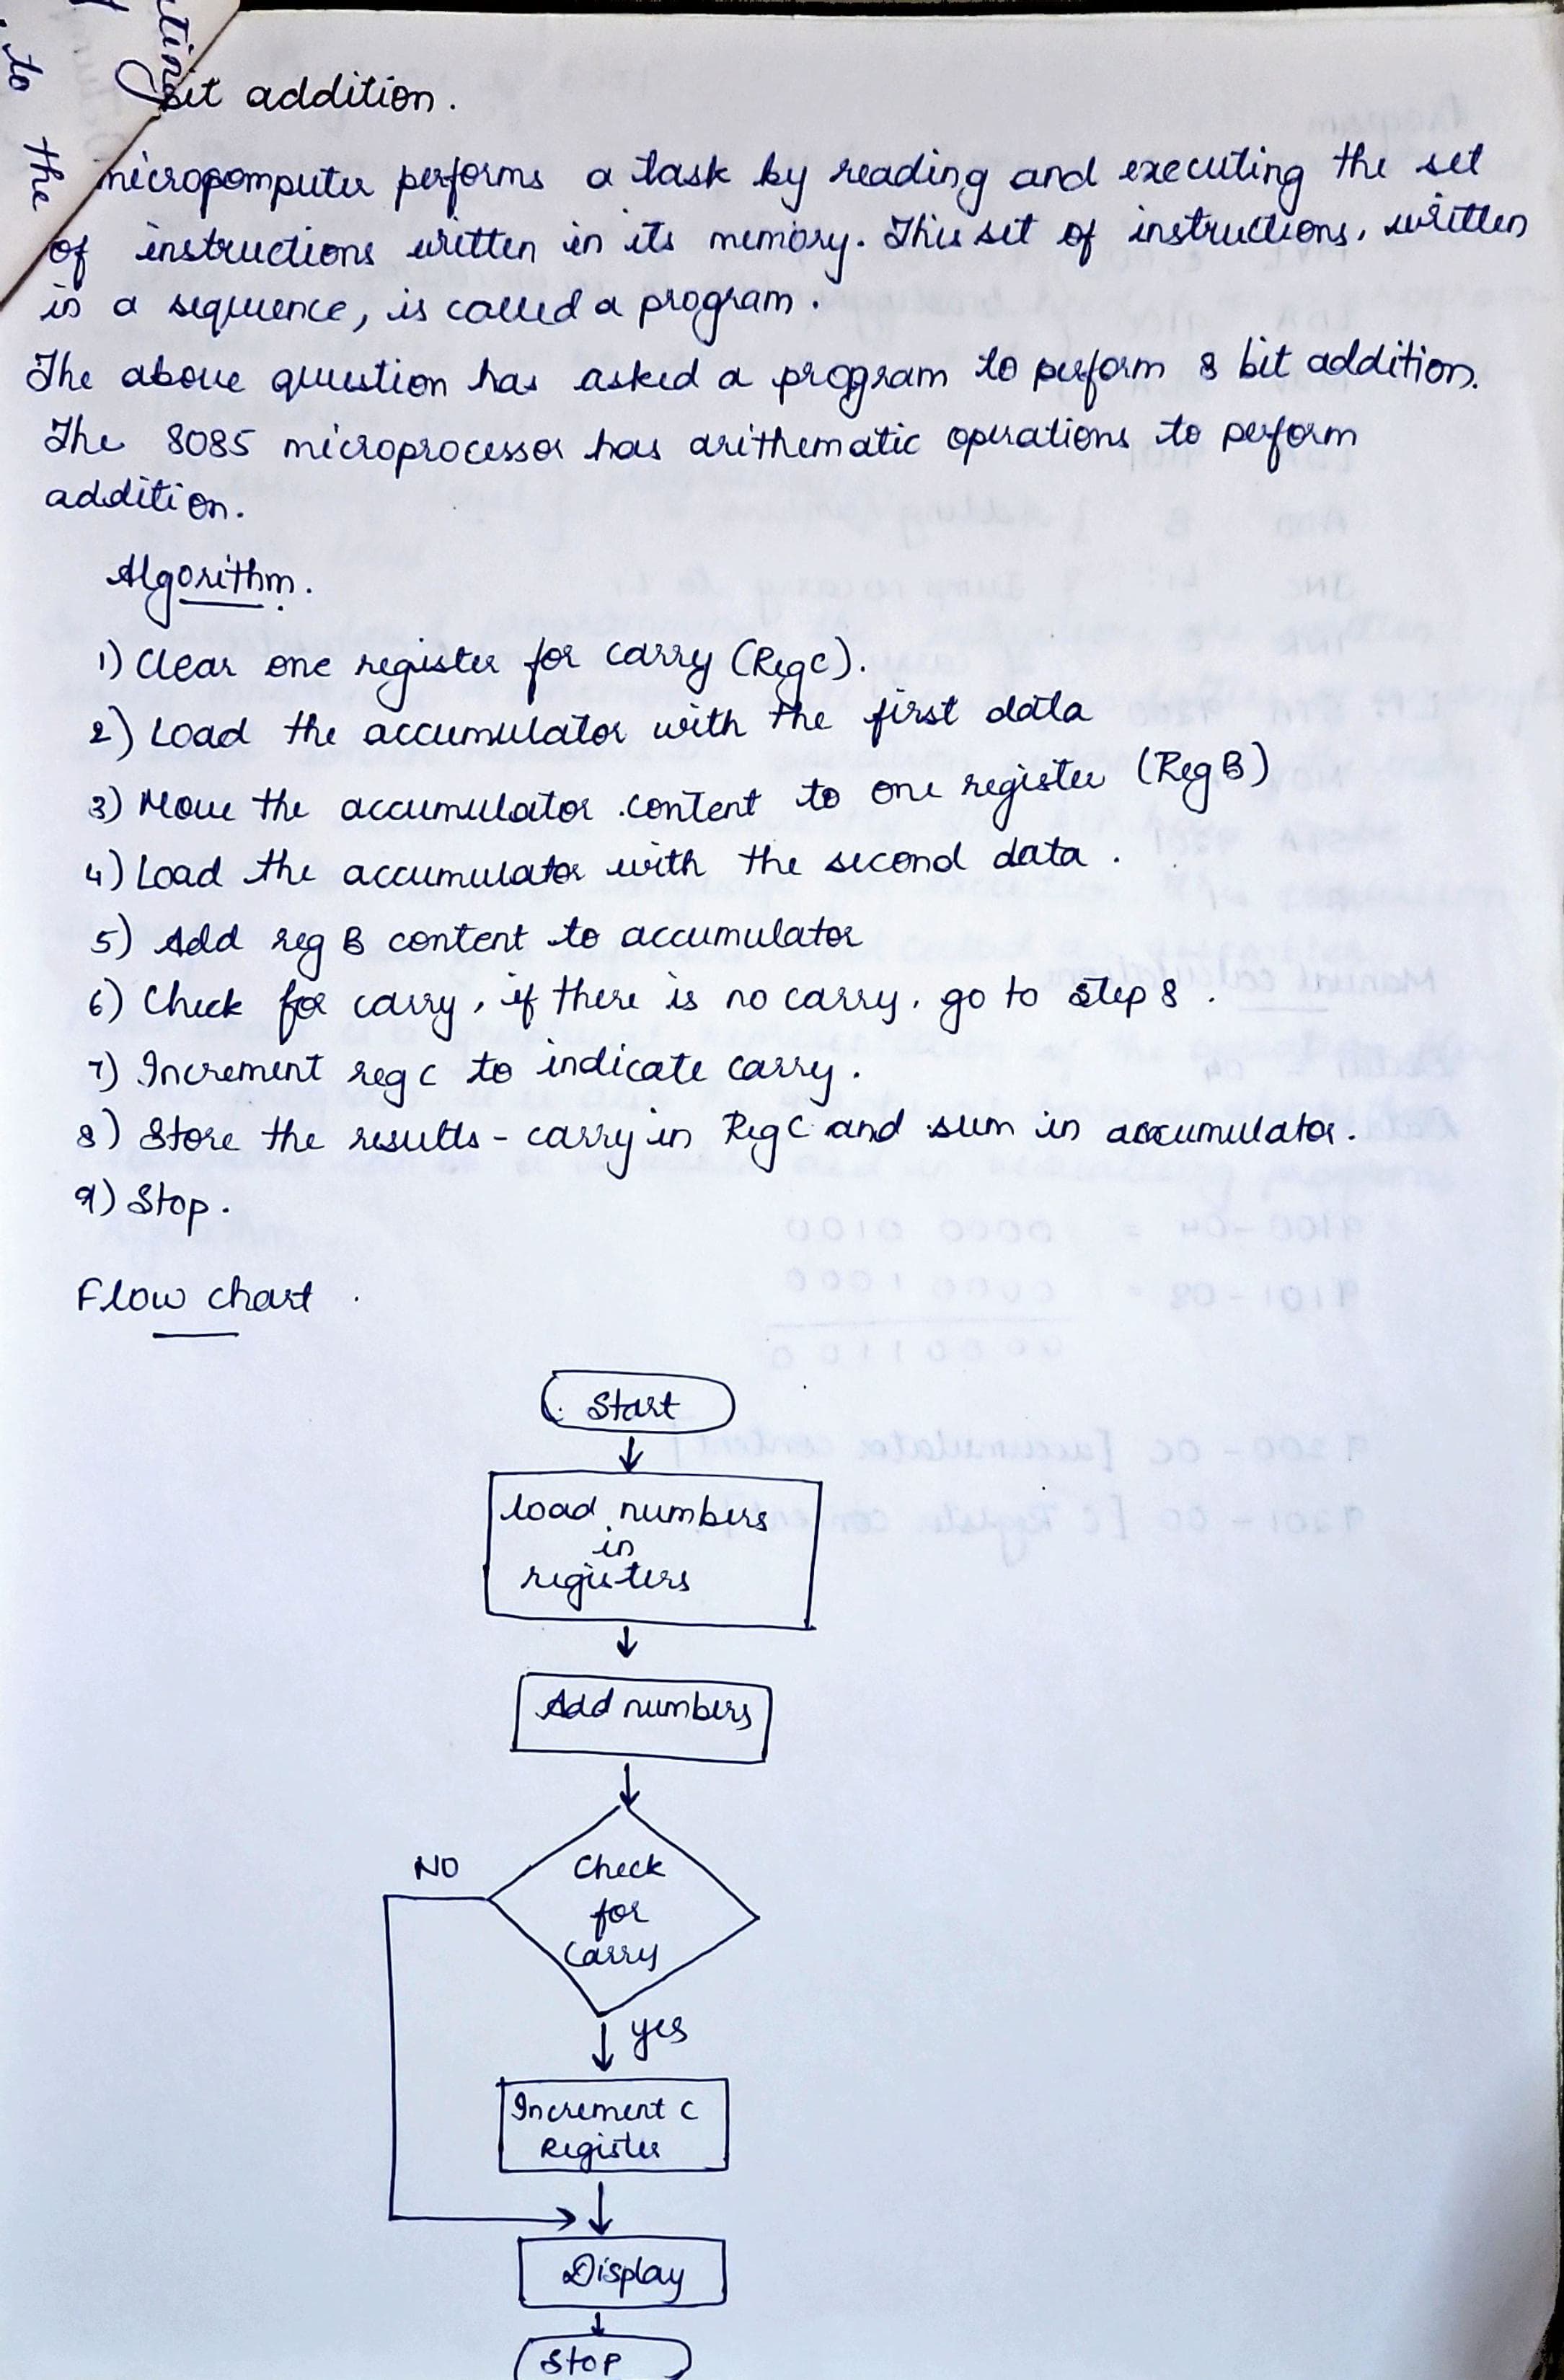 bit addition.
microcomputer performs a task by reading and executing the set
of instructions written in its memory. This set of instructions, written
in a sequence, is called a program.
The above question has asked a program to perform 8 bit addition.
The 8085 microprocessor has arithematic operations to perform
addition.
Algorithm.
1) Clear one register for carry (Reg C).
2) Load the accumulator with the first data
3) Move the accumulator content to one register (Reg B)
4) Load the accumulator with the second data.
5) Add reg B content to accumulator
6) Check for carry, if there is no carry, go to step 8.
7) Increment reg C to indicate carry.
8) Store the results - carry in Reg C and sum in accumulator.
9) Stop.
Flow chart
Start
load numbers
in
registers
Add numbers
NO
Check
for
Carry
yes
Increment C
Register
Display
Stop
to the